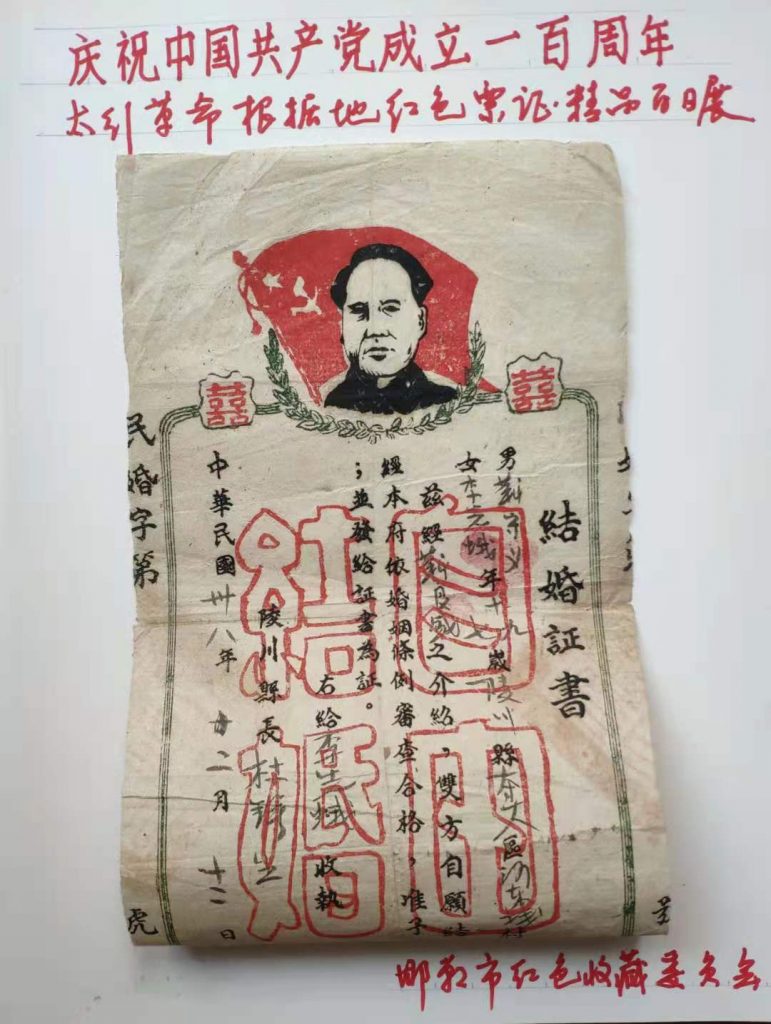 庆祝中国共产党成立一百周年
太行革命根据地红色票证·精品百日展
囍
囍
結婚証書
男 守义
女李 娥年十九七歲陵川縣 區 村
茲經 之介紹，雙方自願結
經本府依婚姻條例審查合格，准予
；並發給証書為証。
右給李 娥收執
陵川縣長杜
中華民國卅八年 十二月 十二日
民婚字第
號
自由結婚
邯郸市红色收藏委员会